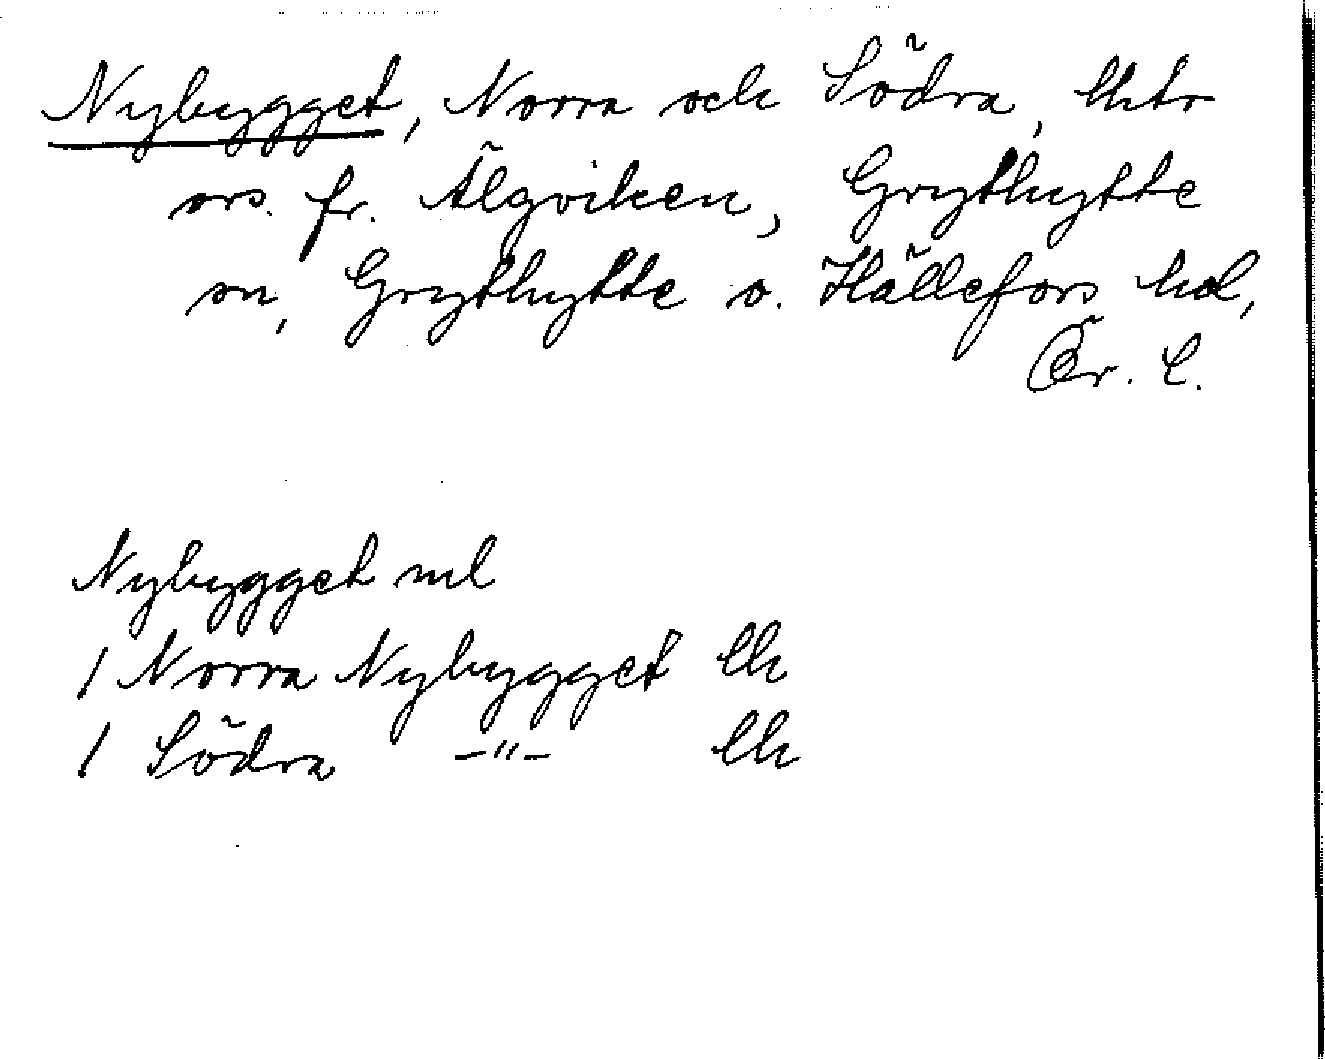 Nybygget, Norra och Södra, lhtr
ovs. fr. Älgviken, Grythytte
sn, Grythytte o. Hällefors hd,
Ör. l.
Nybygget ml
1 Norra Nybygget lh
1 Södra -"- lh